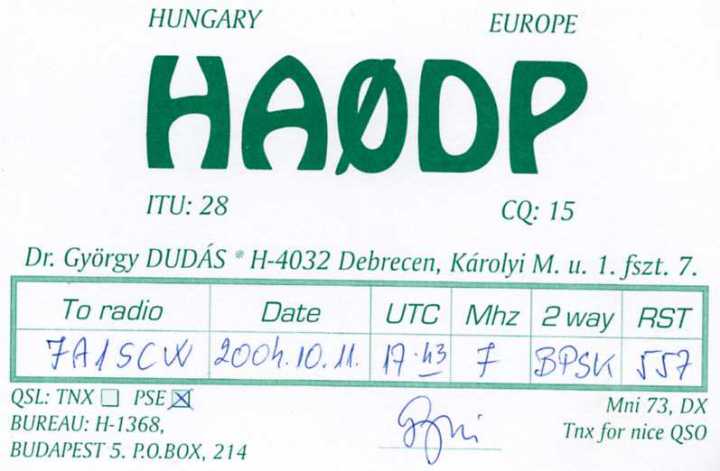 HUNGARY EUROPE
HAØDP
ITU: 28 CQ: 15
Dr. György DUDÁS * H-4032 Debrecen, Károlyi M. u. 1. fszt. 7.
To radio Date UTC Mhz 2 way RST
7A1SCW 2004.10.11. 17.43 7 BPSK 557
QSL: TNX ☐ PSE ☒ Mni 73, DX
BUREAU: H-1368, Tnx for nice QSO
BUDAPEST 5. P.O.BOX, 214